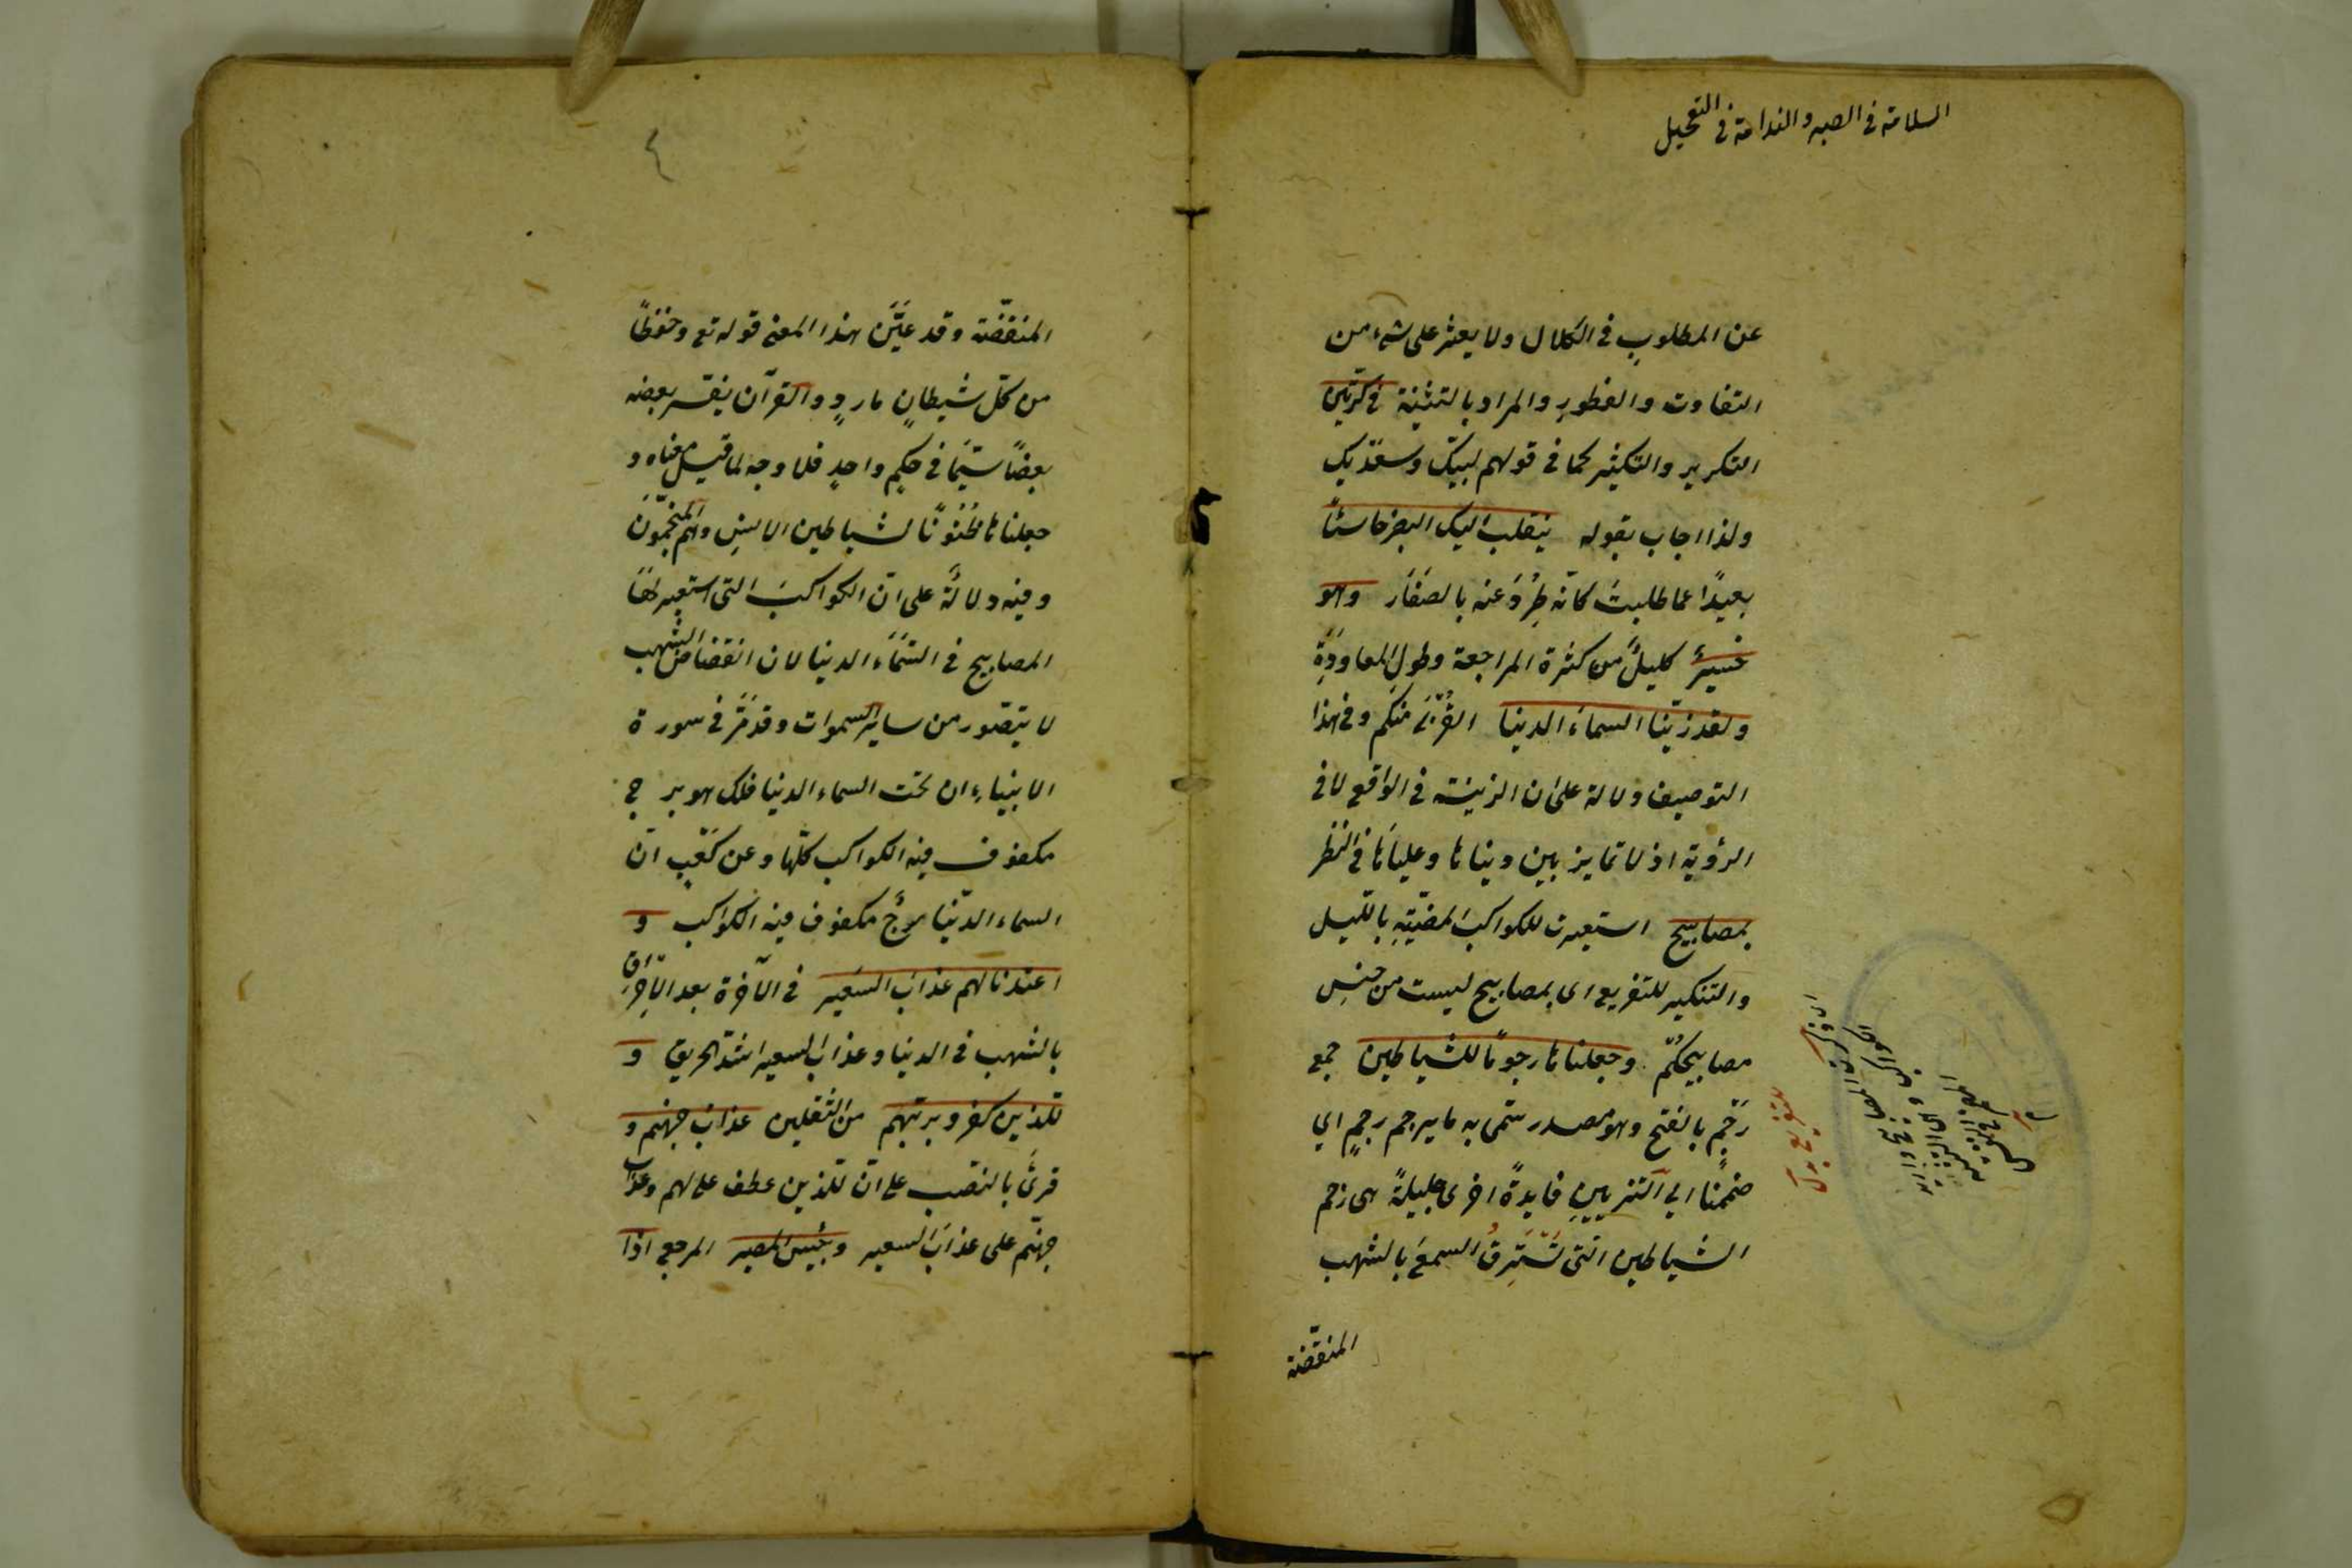 السلامة في الصبر والندامة في التعجيل
عن المطلوبِ في الكلال ولا يعثر على شيء من
التفاوت والفطورِ والمراد بالتثنية في كرّتين
التكرير والتكثير كما في قولهم لبيّك وسعدَيك
ولذا اجاب بقوله ينقلب اليك البصر خاسئًا
بعيدًا عما طلبت كأنّه طُرِدَ عنه بالصغار وهو
حسيرٌ كليلٌ من كثرة المراجعة وطولِ المعاودَةِ
ولقد زيّنا السماءَ الدنيا القُربَى منكم وفي هذا
التوصيف دلالة على ان الزينة في الواقع لا في
الرؤية اذ لا تمايز بين دنياها وعلياها في النظر
بمصابيح استعيرت للكواكب المضيّئةِ بالليل
والتنكير للتفريع اى بمصابيح ليست من جنسِ
مصابيحكُم وجعلناها رجومًا للشياطين جمع
رَجْمٍ بالفتح وهو مصدر سمّى به ما يرجم رجمٍ اي
ضممنا الى التزيينِ فايدةً اخرى جليلةً هى رجم
الشياطين التى تَسْتَرِقُ السمعَ بالشهب
المنقضّة
للتفريع
المنقضّة وقد عيَّنَ هذا المعنى قوله تع وحفظًا
من كلّ شيطانٍ ماردٍ والقرآن يفسّر بعضه
بعضًا سيّما في حكمٍ واحدٍ فلا وجه لما قيل معناه و
جعلناها ظُنُونًا لشياطين الانسِ وهم المنجّمون
وفيه دلالةٌ على انّ الكواكبَ التى استعير لها
المصابيح في السّمَاءِ الدنيا لان انقضاض الشهب
لا يتصّور من ساير السموات وقد مَرّ في سورة
الانبياءِ ان تحت السماء الدنيا فلك هو برج
مكفوف فيه الكواكب كلّها وعن كَعْبٍ انّ
السماء الدّنيا موجٌ مكفوف فيه الكواكب و
اعتدنا لهم عذابَ السّعير في الآخرة بعد الاحراق
بالشهب في الدنيا وعذاب السعير اشدّ الحريق و
للّذين كفروا بربّهم من الثّقلين عذابُ جهنم و
قرئَ بالنّصب على انّ للّذين عطف على لهم وعذاب
جهنّم على عذابَ السعير وبئس المصير المرجع اذا